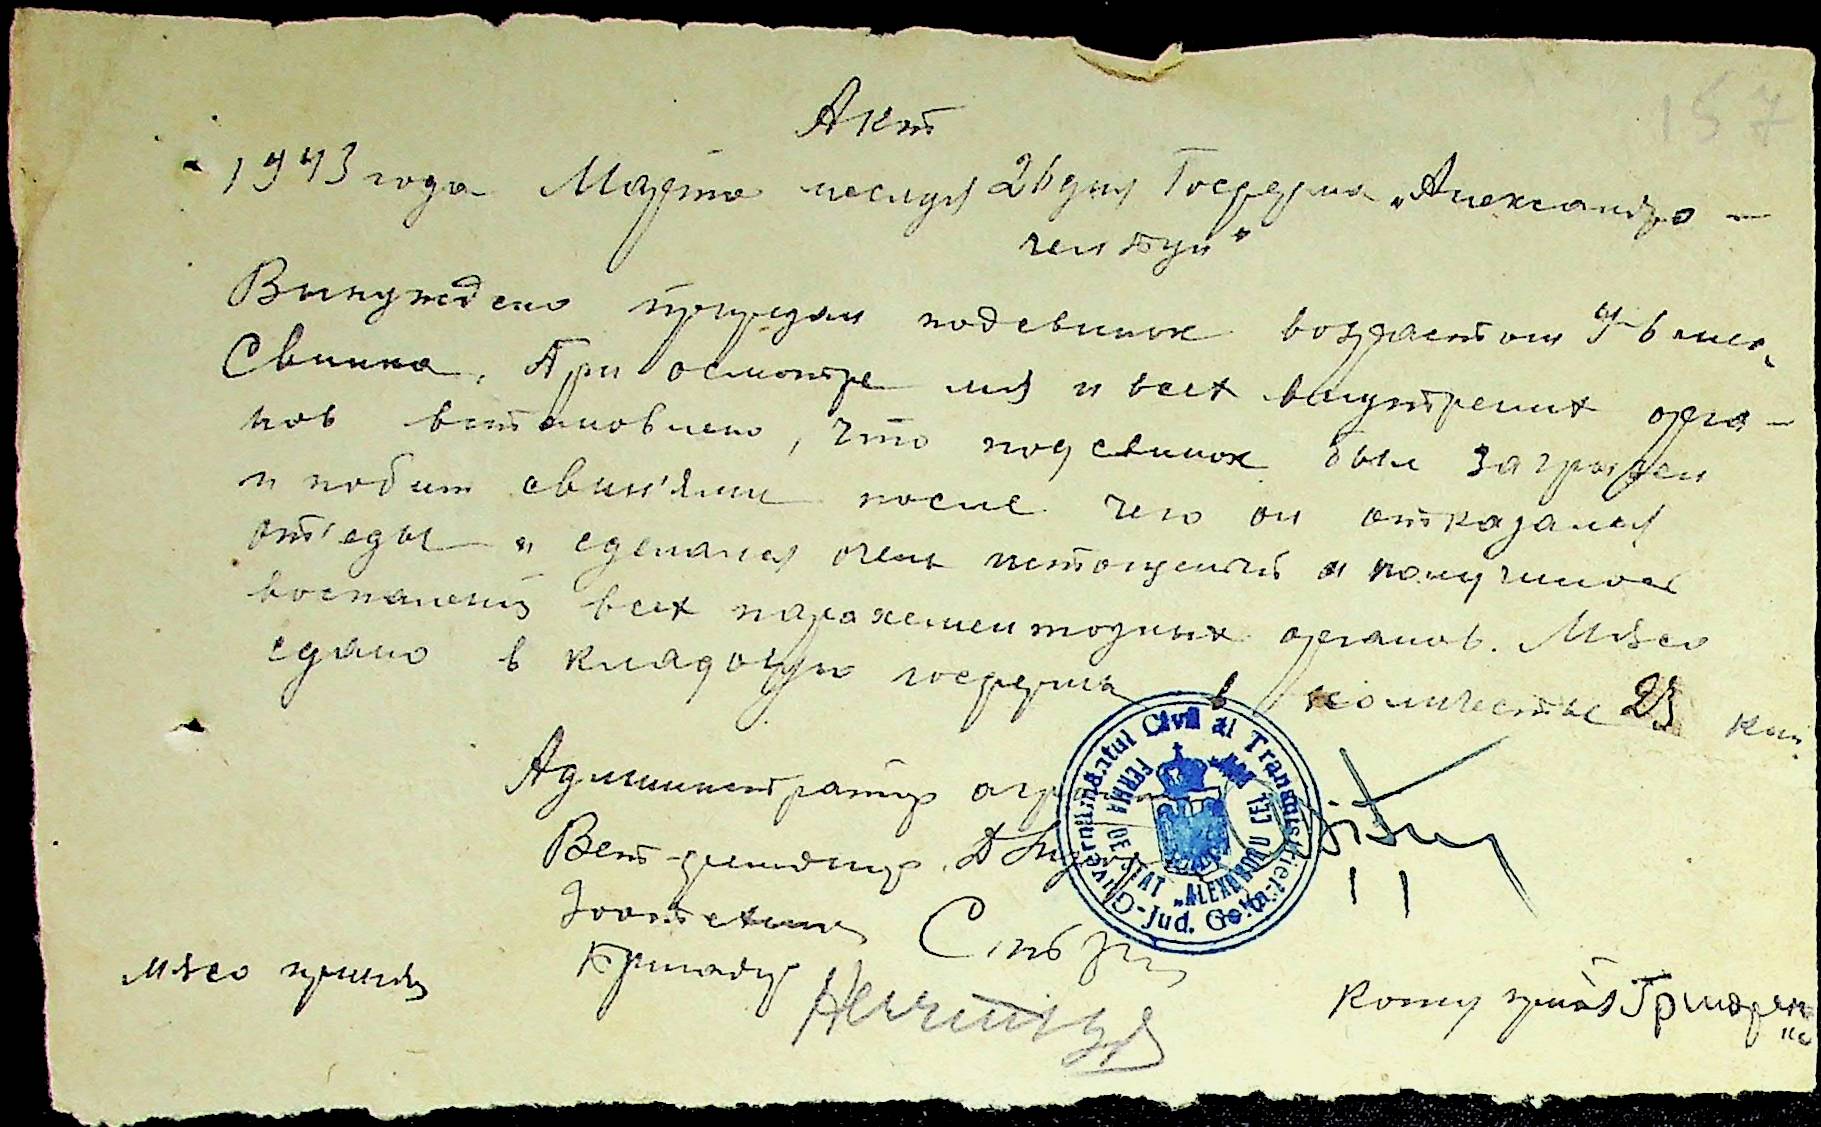 157
Акт
1943 года Марта месяця 26 дня Госферма „Александро-
чел бун"
Вынуждено прирезан подсвинок возрастом 4-6 мес.
Свинка. При осмотре мяs и всех внутрених орга-
нов встановлено, что подсвинок был загрызен
и побит свин'ями после чего он отказался
от'еды и сделался очень истощеный и получилос
воспаления всех паразхементозных органов. Мясо
сдано в кладовую госфермы в количестве 23 кил.
Администратор
Вет-фельдшер
Зоотехник
Бригадир
Мясо принял
Кому
Guvernământul Civil al Transnistriei-Jud. Golta
FERMA DE STAT „ALEXANDRU CEL BUN"